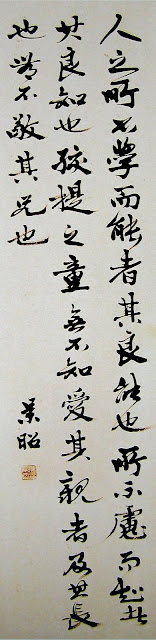 人之所不學而能者其良能也所不慮而知者
其良知也孩提之童無不知愛其親者及其長
也無不敬其兄也
昭